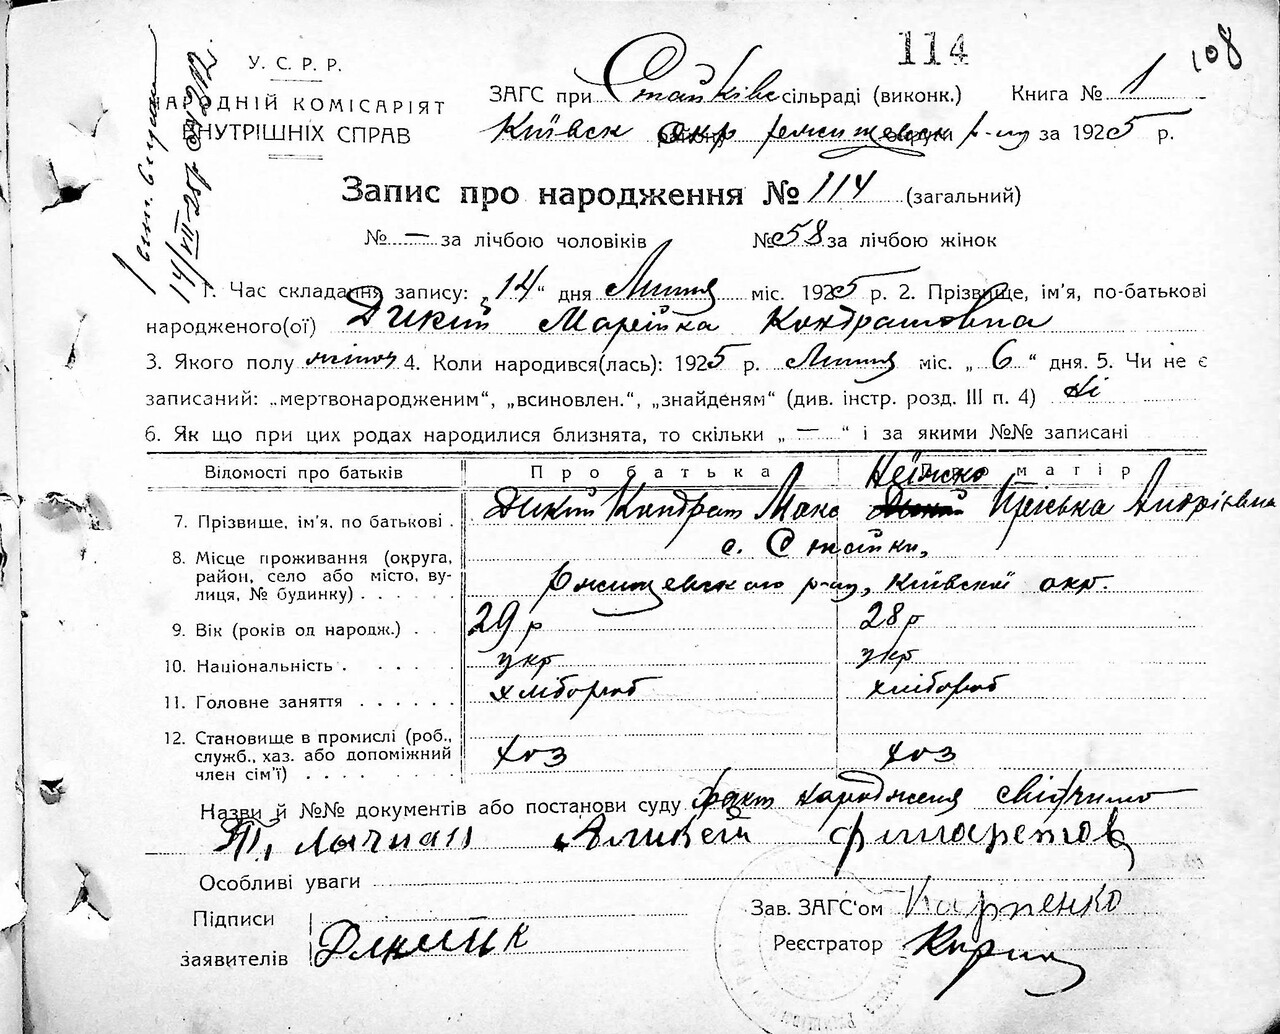 114
108
У. С. Р. Р.
НАРОДНІЙ КОМІСАРІЯТ
ВНУТРІШНІХ СПРАВ
ЗАГС при Стайківс сільраді (виконк.) Книга № 1
Київск окр ржищевск р-ну за 1925 р.
14/VII-25р
Запис про народження № 114 (загальний)
№ — за лічбою чоловіків № 58 за лічбою жінок
1. Час складання запису: „14“ дня Липня міс. 1925 р. 2. Прізвище, ім'я, по-батькові
народженого(ої) Дикий Марійка Кондратовна
3. Якого полу жіноч 4. Коли народився(лась): 1925 р. Липня міс. „6“ дня. 5. Чи не є
записаний: „мертвонародженим“, „всиновлен.“, „знайденям“ (див. інстр. розд. III п. 4) Ні
6. Як що при цих родах народилися близнята, то скільки „—“ і за якими №№ записані
Відомості про батьків Про батька Про матір
7. Прізвище, ім'я, по батькові . Дикий Кондрат Макс Пріська Андріївна
8. Місце проживання (округа, с. Стайки,
район, село або місто, ву-
лиця, № будинку) . . . . . Ржищевского р-ну, Київскої окр.
9. Вік (років од народж.) . . 29 р 28 р
10. Національність . . . . . укр укр
11. Головне заняття . . . . . . хлібороб хлібороб
12. Становище в промислі (роб.,
служб., хаз. або допоміжний хоз хоз
член сім'ї) . . . . . .
Назви й №№ документів або постанови суду факт народженя свідчимо
Особливі уваги
Підписи Зав. ЗАГС'ом Карпенко
заявителів Реєстратор